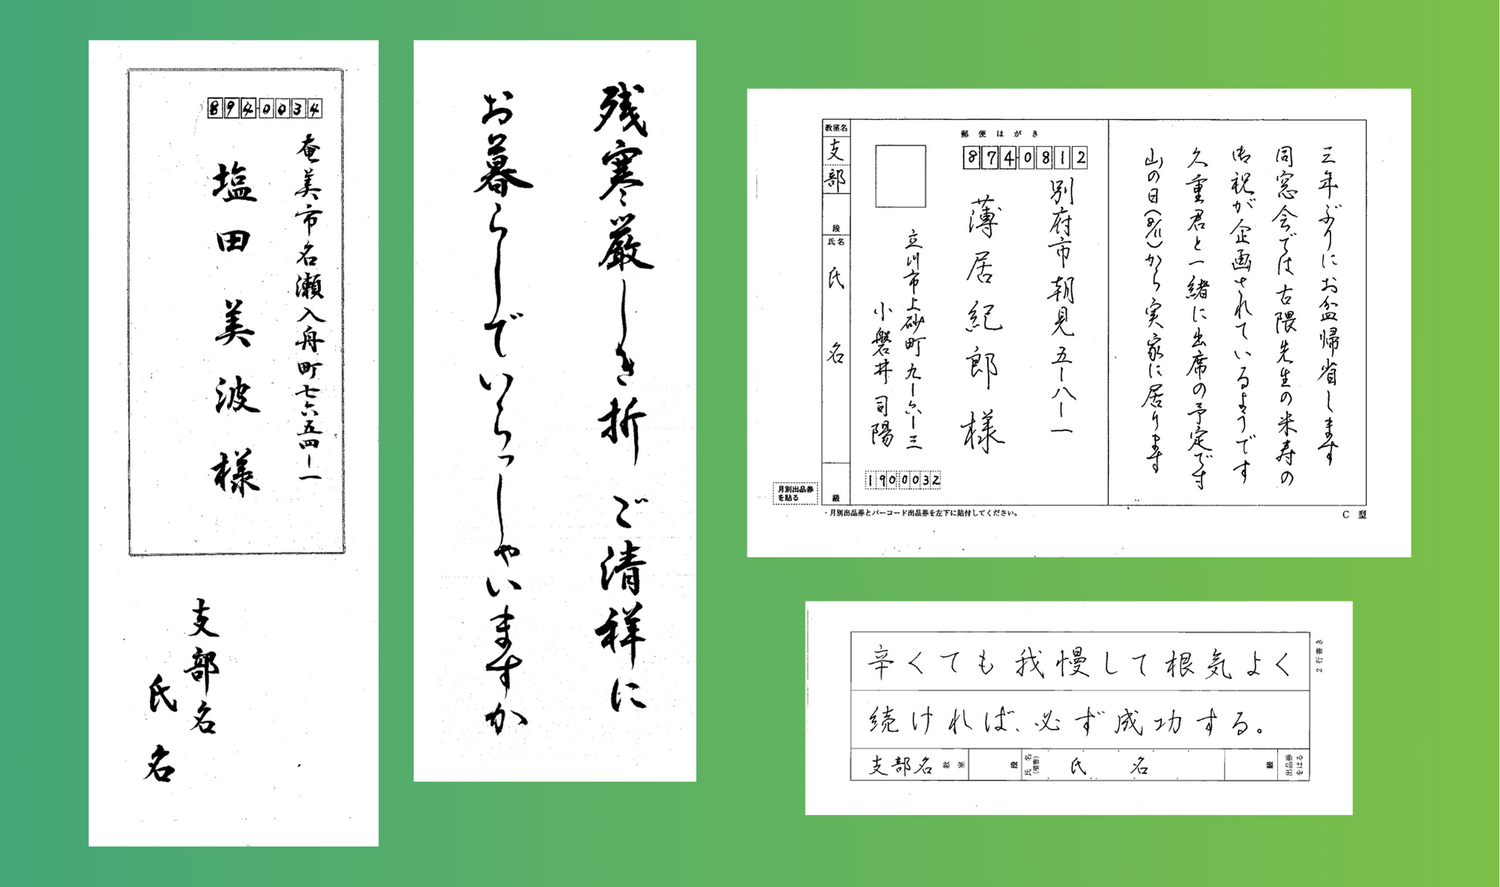 894-0034
奄美市名瀬入舟町七六五四ー一
塩田美波様
支部名
氏名
残寒厳しき折 ご清祥に
お暮らしでいらっしゃいますか
教室名
支部
段
氏名
氏名
級
月別出品券
を貼る
郵便はがき
874-0812
別府市朝見五ー八ー一
薄居紀郎様
立川市上砂町九ー六ー三
小磐井司陽
1900032
三年ぶりにお盆帰省します
同窓会では古隈先生の米寿の
御祝が企画されているようです
久重君と一緒に出席の予定です
山の日(8/11)から実家に居ります
・月別出品券とバーコード出品券を左下に貼付してください。
C 型
2行書き
辛くても我慢して根気よく
続ければ、必ず成功する。
支部名 教室 段 氏名(楷書) 氏名 級 出品券をはる